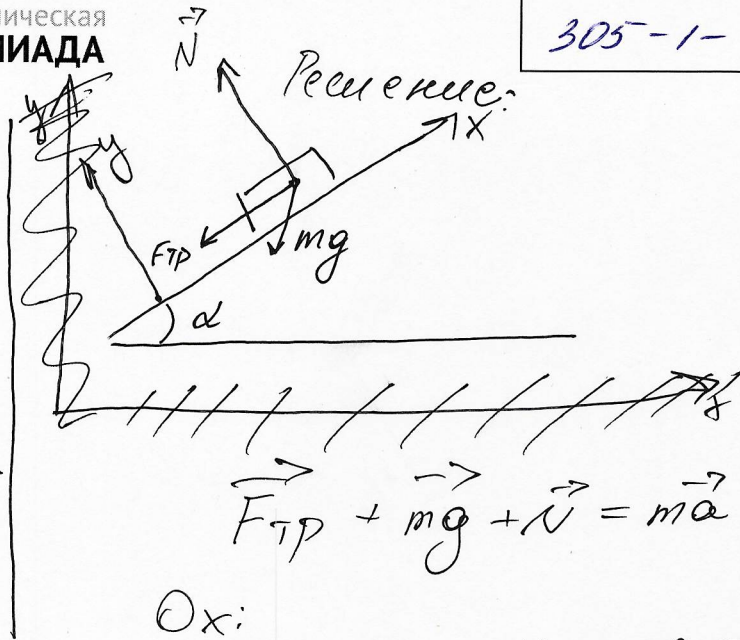 ническая
ИАДА
305-1-
Решение:
N
y
X
Fтр
mg
α
Fтр + mg + N = ma
Ox: